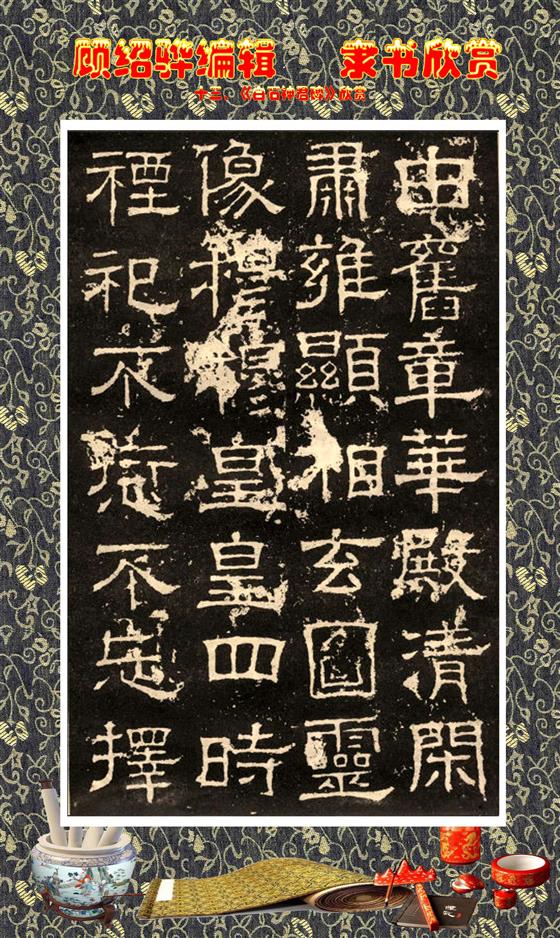 顾绍骅编辑 隶书欣赏
十三、《白石神君碑》欣赏
由舊章華殿清閑
肅雍顯相玄圖靈
像穆穆皇皇四時
禋祀不愆不忘擇